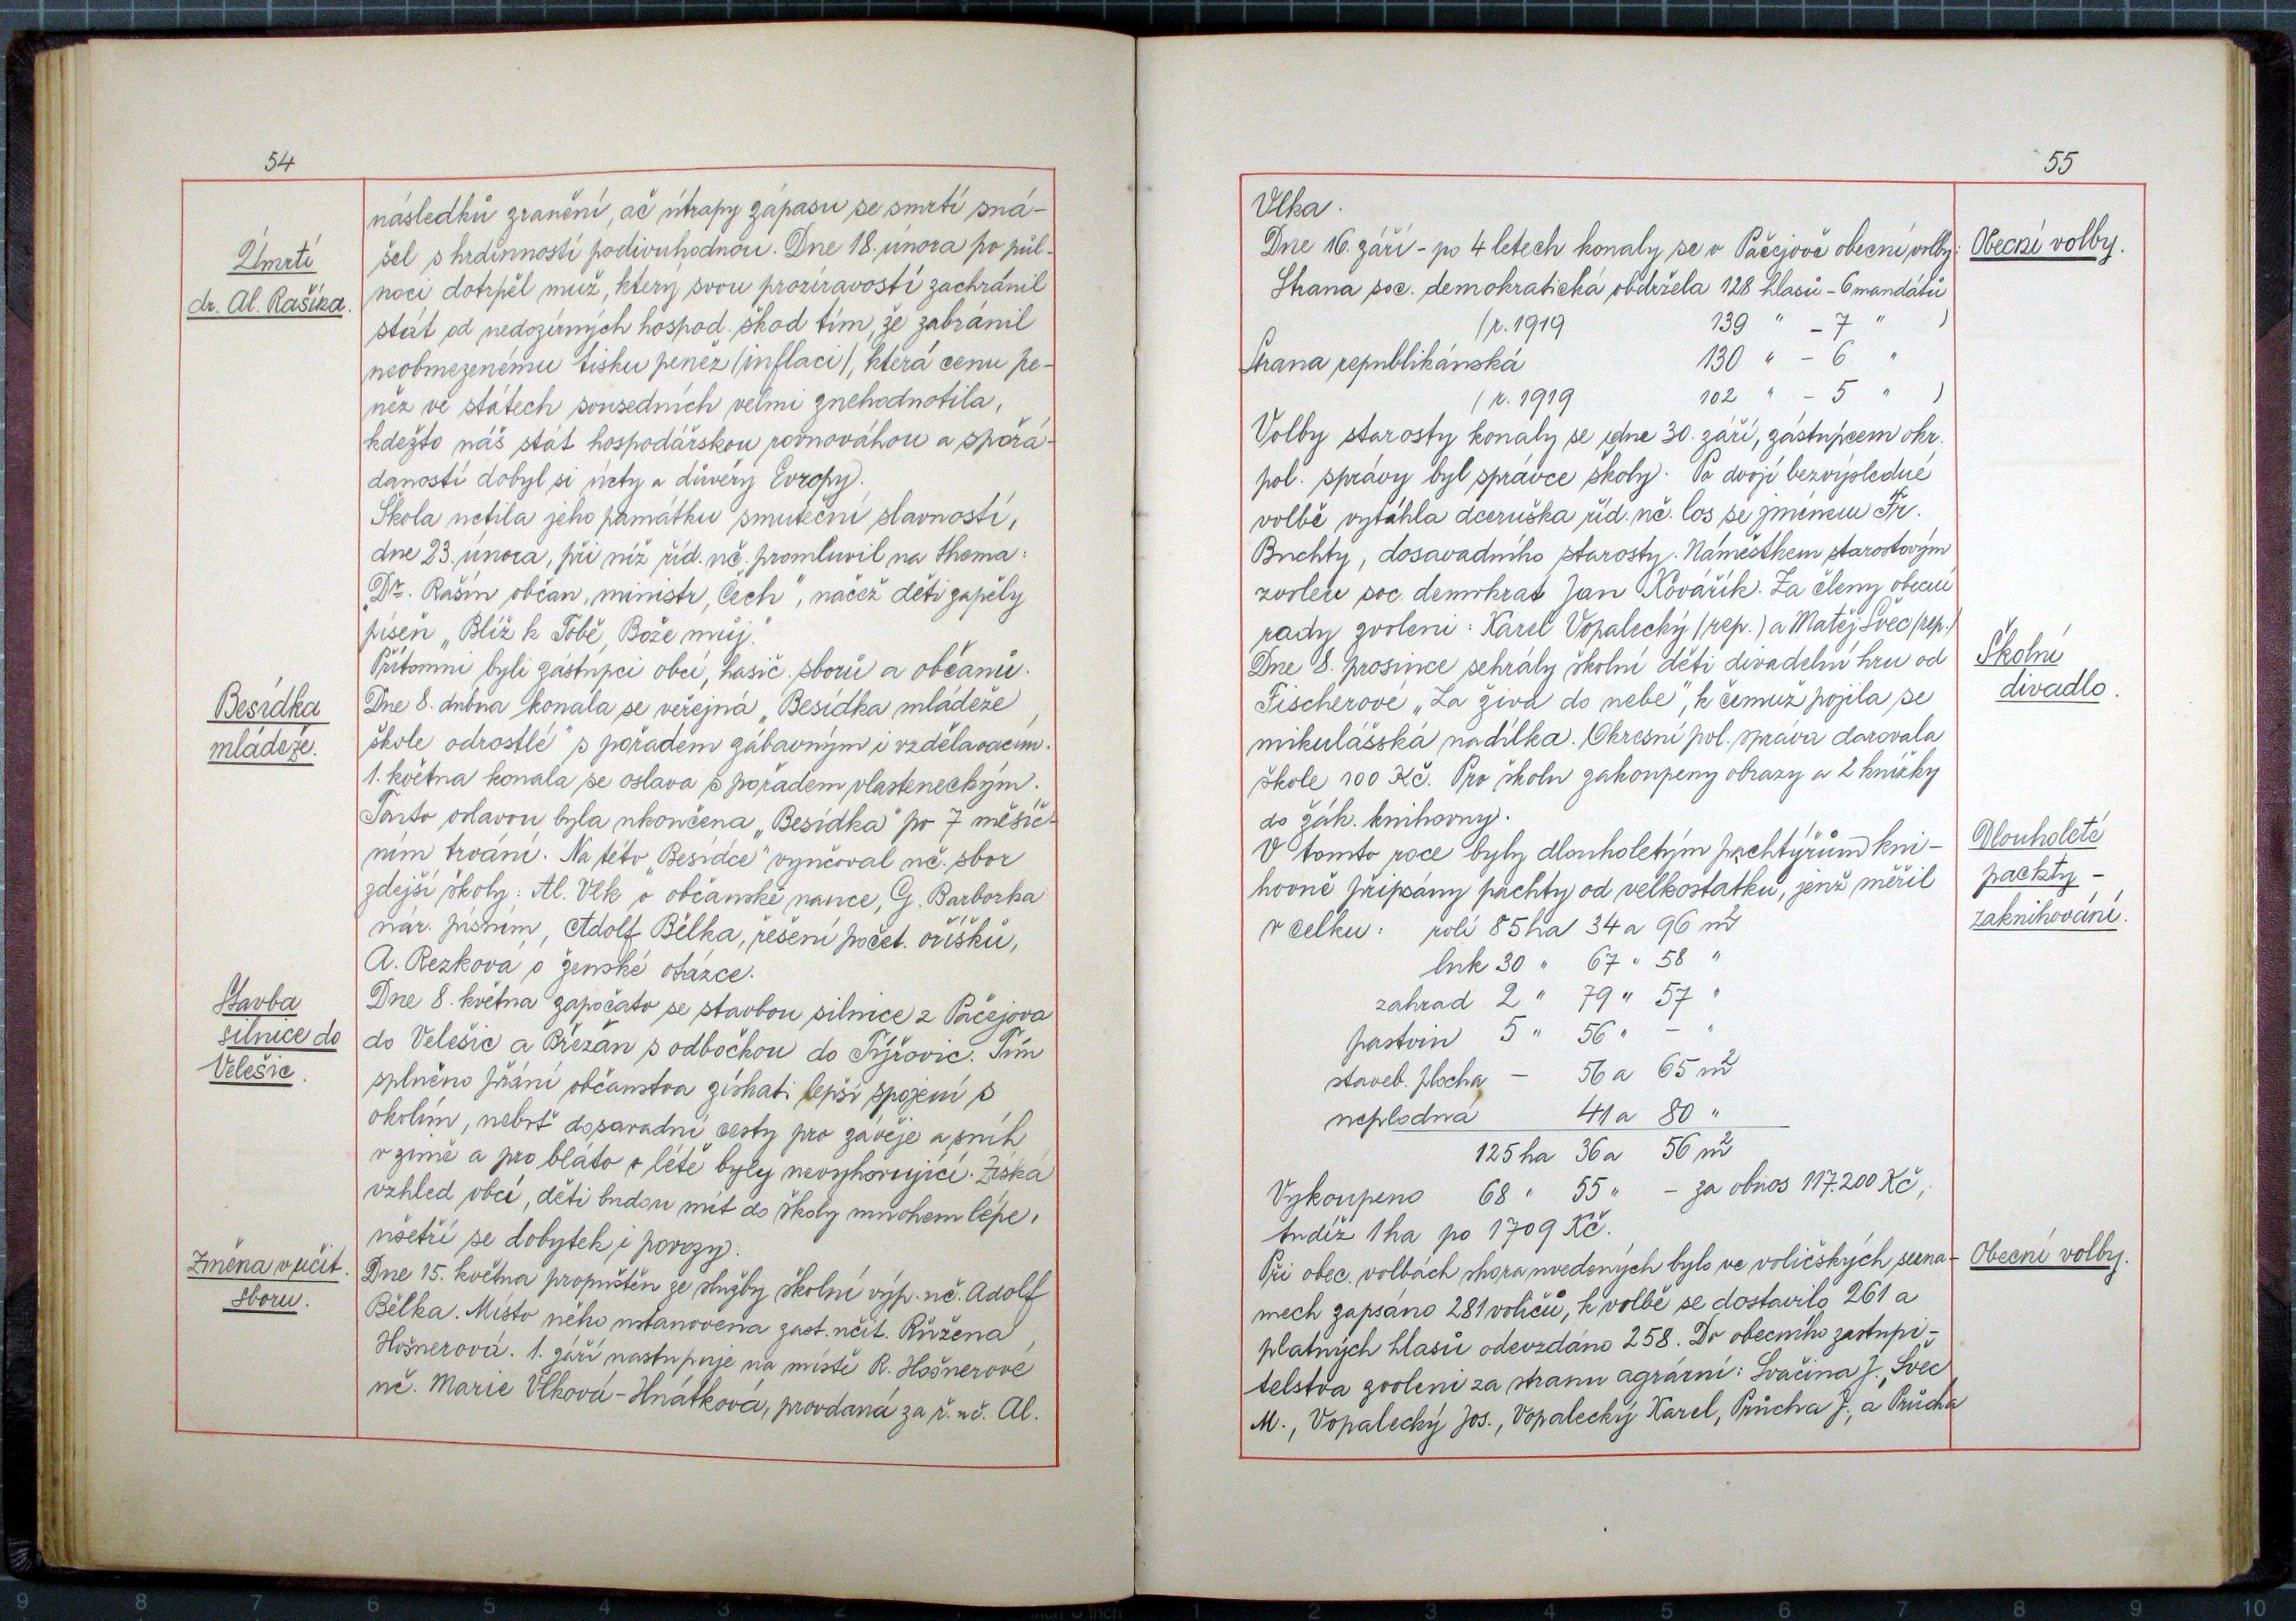 54
Úmrtí
dr. Al. Rašína.
následků zranění, ač útrapy zápasu se smrtí sná-
šel s hrdinností podivuhodnou. Dne 18. února po půl-
noci dotrpěl muž, který svou prozíravostí zachránil
stát od nedozírných hospod. škod tím, že zabránil
neobmezenému tisku peněz (inflaci), která cenu pe-
něz ve státech sousedních velmi znehodnotila,
kdežto náš stát hospodářskou rovnováhou a spořá-
daností dobyl si úcty a důvěry Evropy.
Škola uctila jeho památku smuteční slavností,
dne 23. února, při níž říd. uč. promluvil na thema:
„Dr. Rašín občan, ministr, Čech", načež děti zapěly
píseň „Blíž k Tobě, Bože můj."
Přítomni byli zástupci obcí, hasič. sborů a občanů.
Besídka
mládeže.
Dne 8. dubna konala se veřejná „Besídka mládeže
škole odrostlé" s pořadem zábavným i vzdělavacím.
1. května konala se oslava s pořadem vlasteneckým.
Touto oslavou byla ukončena „Besídka" po 7 měsíč-
ním trvání. Na této „Besídce" vyučoval uč. sbor
zdejší školy: Al. Vlk o občanské nauce, G. Barborka
nár. písním, Adolf Bělka, řešení počet. oříšků,
A. Rezková o ženské otázce.
Stavba
silnice do
Velešic.
Dne 8. května započato se stavbou silnice z Pačejova
do Velešic a Břežan s odbočkou do Týřovic. Tím
splněno přání občanstva získati lepší spojení s
okolím, neboť dosavadní cesty pro závěje a sníh
v zimě a pro bláto v létě byly nevyhovující. Získá
vzhled obcí, děti budou mít do školy mnohem lépe,
ušetří se dobytek i povozy.
Změna v učit.
sboru.
Dne 15. května propuštěn ze služby školní výp. uč. Adolf
Bělka. Místo něho ustanovena zast. učit. Růžena
Hošnerová. 1. září nastupuje na místě R. Hošnerové
uč. Marie Vlková-Hnátková, provdaná za ř. uč. Al.
55
Vlka.
Dne 16. září - po 4 letech konaly se v Pačejově obecní volby:
Obecní volby.
Strana soc. demokratická obdržela 128 hlasů - 6 mandátů
(r. 1919 139 " - 7 " )
Strana republikánská 130 " - 6 "
(r. 1919 102 " - 5 " )
Volby starosty konaly se dne 30. září, zástupcem okr.
pol. správy byl správce školy. Po dvojí bezvýsledné
volbě vytáhla dceruška říd. uč. los se jménem Fr.
Buchty, dosavadního starosty. Náměstkem starostovým
zvolen soc. demokrat Jan Kovářík. Za členy obecní
rady zvoleni: Karel Vopalecký (rep.) a Matěj Švec (rep.)
Dne 8. prosince sehrály školní děti divadelní hru od
Školní
divadlo.
Fischerové „Za živa do nebe", k čemuž pojila se
mikulášská nadílka. Okresní pol. správa darovala
škole 100 Kč. Pro školu zakoupeny obrazy a 2 knížky
do žák. knihovny.
V tomto roce byly dlouholetým pachtýřům kni-
Dlouholeté
pachty -
zaknihování.
hovně připsány pachty od velkostatku, jenž měřil
v celku: rolí 85 ha 34 a 96 m2
luk 30 " 67 " 58 "
zahrad 2 " 79 " 57 "
pastvin 5 " 56 " - "
staveb. plocha - 56 a 65 m2
neplodná 41 a 80 "
125 ha 36 a 56 m2
Vykoupeno 68 " 55 " - za obnos 117.200 Kč,
tudíž 1 ha po 1709 Kč.
Při obec. volbách shora uvedených bylo ve voličských sezna-
Obecní volby.
mech zapsáno 281 voličů, k volbě se dostavilo 261 a
platných hlasů odevzdáno 258. Do obecního zastupi-
telstva zvoleni za stranu agrární: Svačina J., Švec
M., Vopalecký Jos., Vopalecký Karel, Průcha J., a Průcha